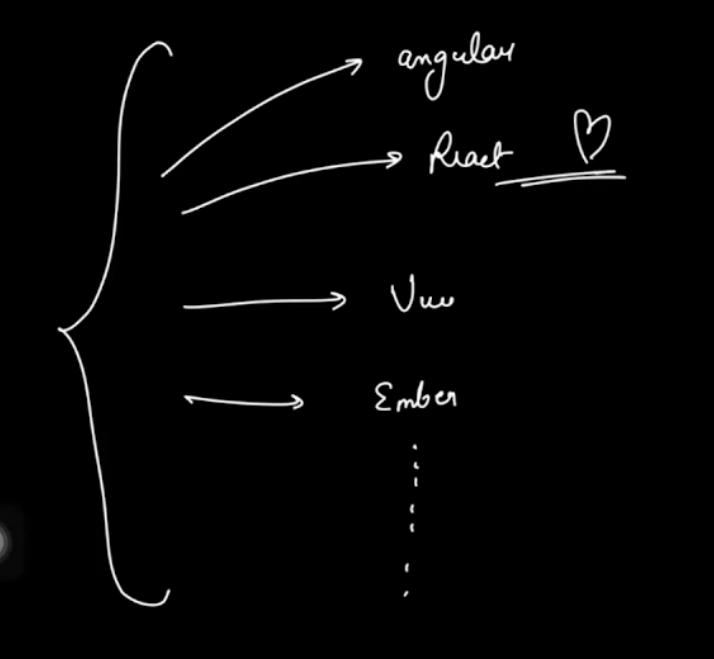 angular
React
Vue
Ember